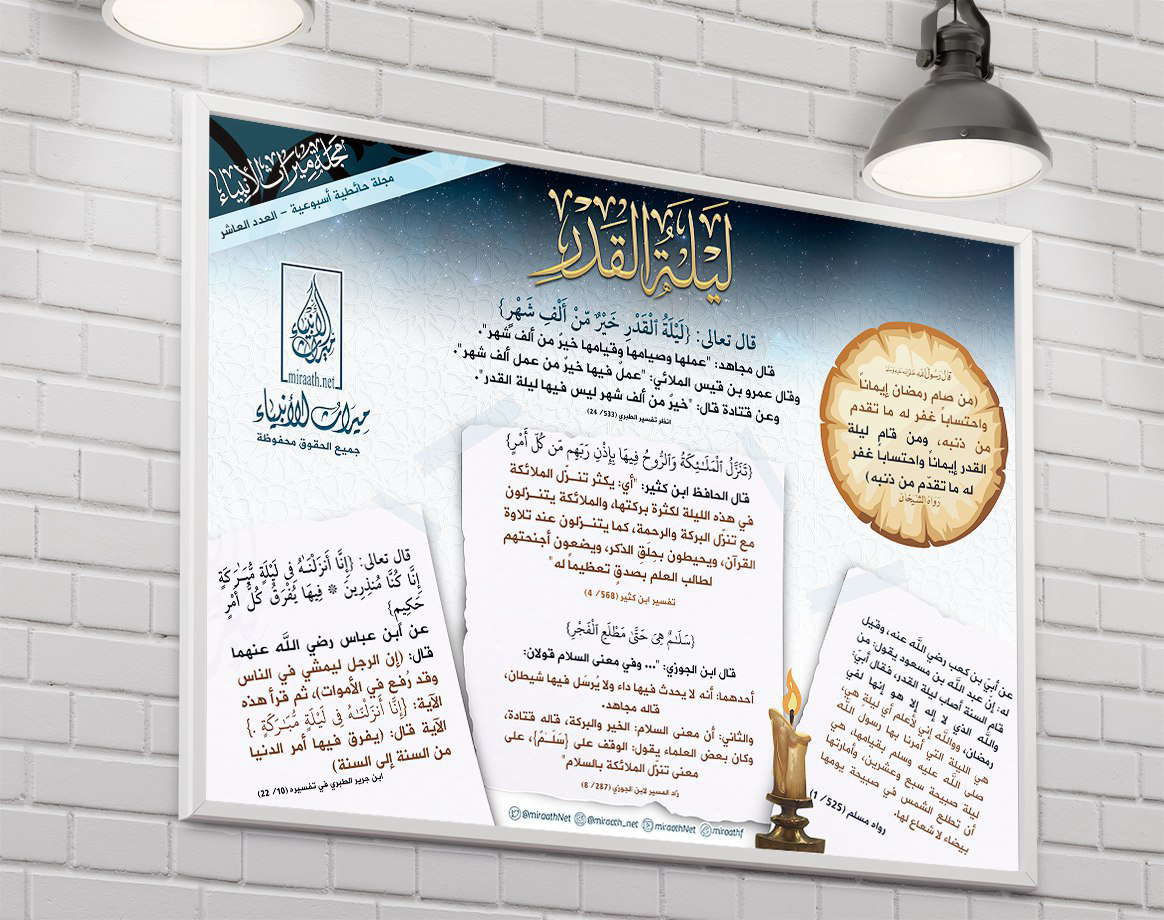 مجلة ميراث الأنبياء
مجلة حائطية أسبوعية – العدد العاشر
ميراث الأنبياء
miraath.net
ميراث الأنبياء
جميع الحقوق محفوظة
لَيْلَةُ القَدْرِ
قال تعالى: {لَيْلَةُ ٱلْقَدْرِ خَيْرٌ مِّنْ أَلْفِ شَهْرٍ}
قال مجاهد: "عملها وصيامها وقيامها خيرٌ من ألف شهر".
وقال عمرو بن قيس الملائي: "عملٌ فيها خيرٌ من عمل ألف شهر".
وعن قتادة قال: "خيرٌ من ألف شهر ليس فيها ليلة القدر".
انظر تفسير الطبري (533/ 24)
قال رسول الله صلى الله عليه وسلم
(من صام رمضان إيماناً
واحتساباً غفر له ما تقدم
من ذنبه، ومن قام ليلة
القدر إيماناً واحتساباً غفر
له ما تقدّم من ذنبه)
رواه الشيخان
{تَنَزَّلُ ٱلْمَلَـٰٓئِكَةُ وَٱلرُّوحُ فِيهَا بِإِذْنِ رَبِّهِم مِّن كُلِّ أَمْرٍ}
قال الحافظ ابن كثير: "أي: يكثر تنــزّل الملائكة
في هذه الليلة لكثرة بركتها، والملائكة يتنــزلون
مع تنزّل البركة والرحمة، كما يتنــزلون عند تلاوة
القرآن، ويحيطون بحِلَقِ الذكر، ويضعون أجنحتهم
لطالب العلم بصدقٍ تعظيماً له"
تفسير ابن كثير (568/ 4)
{سَلَـٰمٌ هِىَ حَتَّىٰ مَطْلَعِ ٱلْفَجْرِ}
قال ابن الجوزي: "... وفي معنى السلام قولان:
أحدهما: أنه لا يحدث فيها داء ولا يُرسَل فيها شيطان،
قاله مجاهد.
والثاني: أن معنى السلام: الخير والبركة، قاله قتادة،
وكان بعض العلماء يقول: الوقف على {سَلَـٰمٌ}، على
معنى تنزّل الملائكة بالسلام"
زاد المسير لابن الجوزي (287/ 8)
قال تعالى: {إِنَّآ أَنزَلْنَـٰهُ فِى لَيْلَةٍ مُّبَـٰرَكَةٍ
إِنَّا كُنَّا مُنذِرِينَ * فِيهَا يُفْرَقُ كُلُّ أَمْرٍ
حَكِيمٍ}
عن ابن عباس رضي اللَّه عنهما
قال: (إن الرجل ليمشي في الناس
وقد رُفع في الأموات)، ثم قرأ هذه
الآية: {إِنَّآ أَنزَلْنَـٰهُ فِى لَيْلَةٍ مُّبَـٰرَكَةٍ}
الآية قال: (يفرق فيها أمر الدنيا
من السنة إلى السنة)
ابن جرير الطبري في تفسيره (10/ 22)
عن أُبيّ بن كعب رضي اللَّه عنه، وقيل
له: إنّ عبد اللَّه بن مسعود يقول: من
قام السنة أصاب ليلة القدر، فقال أبيّ:
واللَّه الذي لا إله إلا هو إنها لفي
رمضان، وواللَّه إني لأعلم أي ليلة هي،
هي الليلة التي أمرنا بها رسول اللَّه
صلى اللَّه عليه وسلم بقيامها، هي
ليلة صبيحة سبع وعشرين، وأمارتها
أن تطلع الشمس في صبيحة يومها
بيضاء لا شعاع لها.
رواه مسلم (525/ 1)
@miraathNet @miraath_net miraathNet miraathf